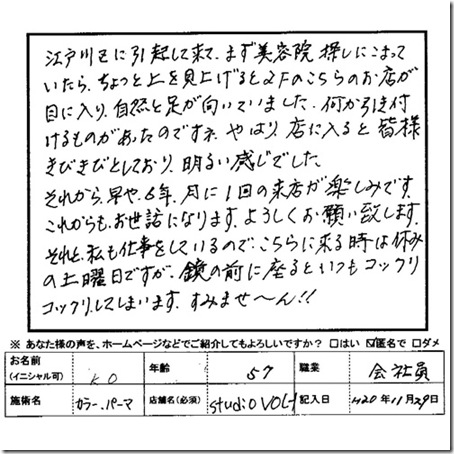 江戸川区に引起して来て、まず美容院探しにこまって
いたら、ちょっと上を見上げると2Fのこちらのお店が
目に入り、自然と足が向いていました。何か引き付
けるものがあったのですネ。やはり、店に入ると皆様
きびきびとしており、明るい感じでした。
それから、早や、6年、月に1回の来店が楽しみです。
これからも、お世話になります。よろしくお願い致します。
それと、私も仕事をしているので、こちらに来る時は休み
の土曜日ですが、鏡の前に座るといつもコックリ
コックリ、してしまいます。すみませ〜ん!!
※ あなた様の声を、ホームページなどでご紹介してもよろしいですか？ □はい ☑匿名で □ダメ
お名前 (イニシャル可) K O 年齢 57 職業 会社員
施術名 カラー、パーマ 店舗名(必須) studio VOL-1 記入日 H20年11月29日